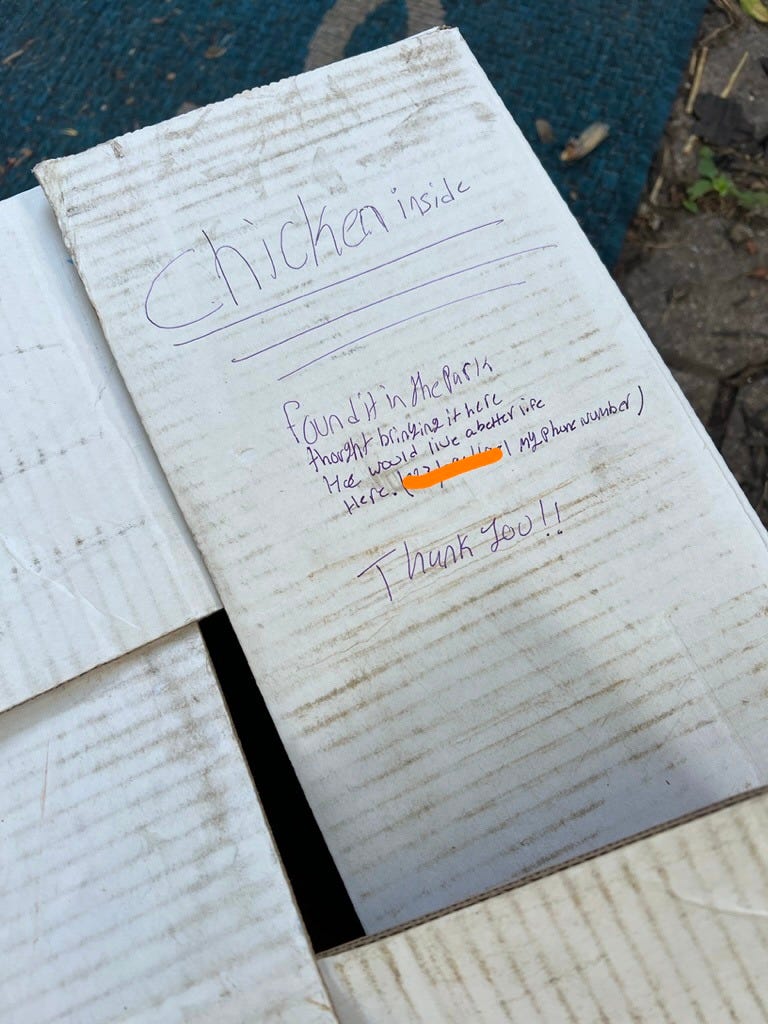 Chicken inside
found it in the Park
thorght bringing it here
Hee would live a better life
Here. my phone number)
Thank you!!